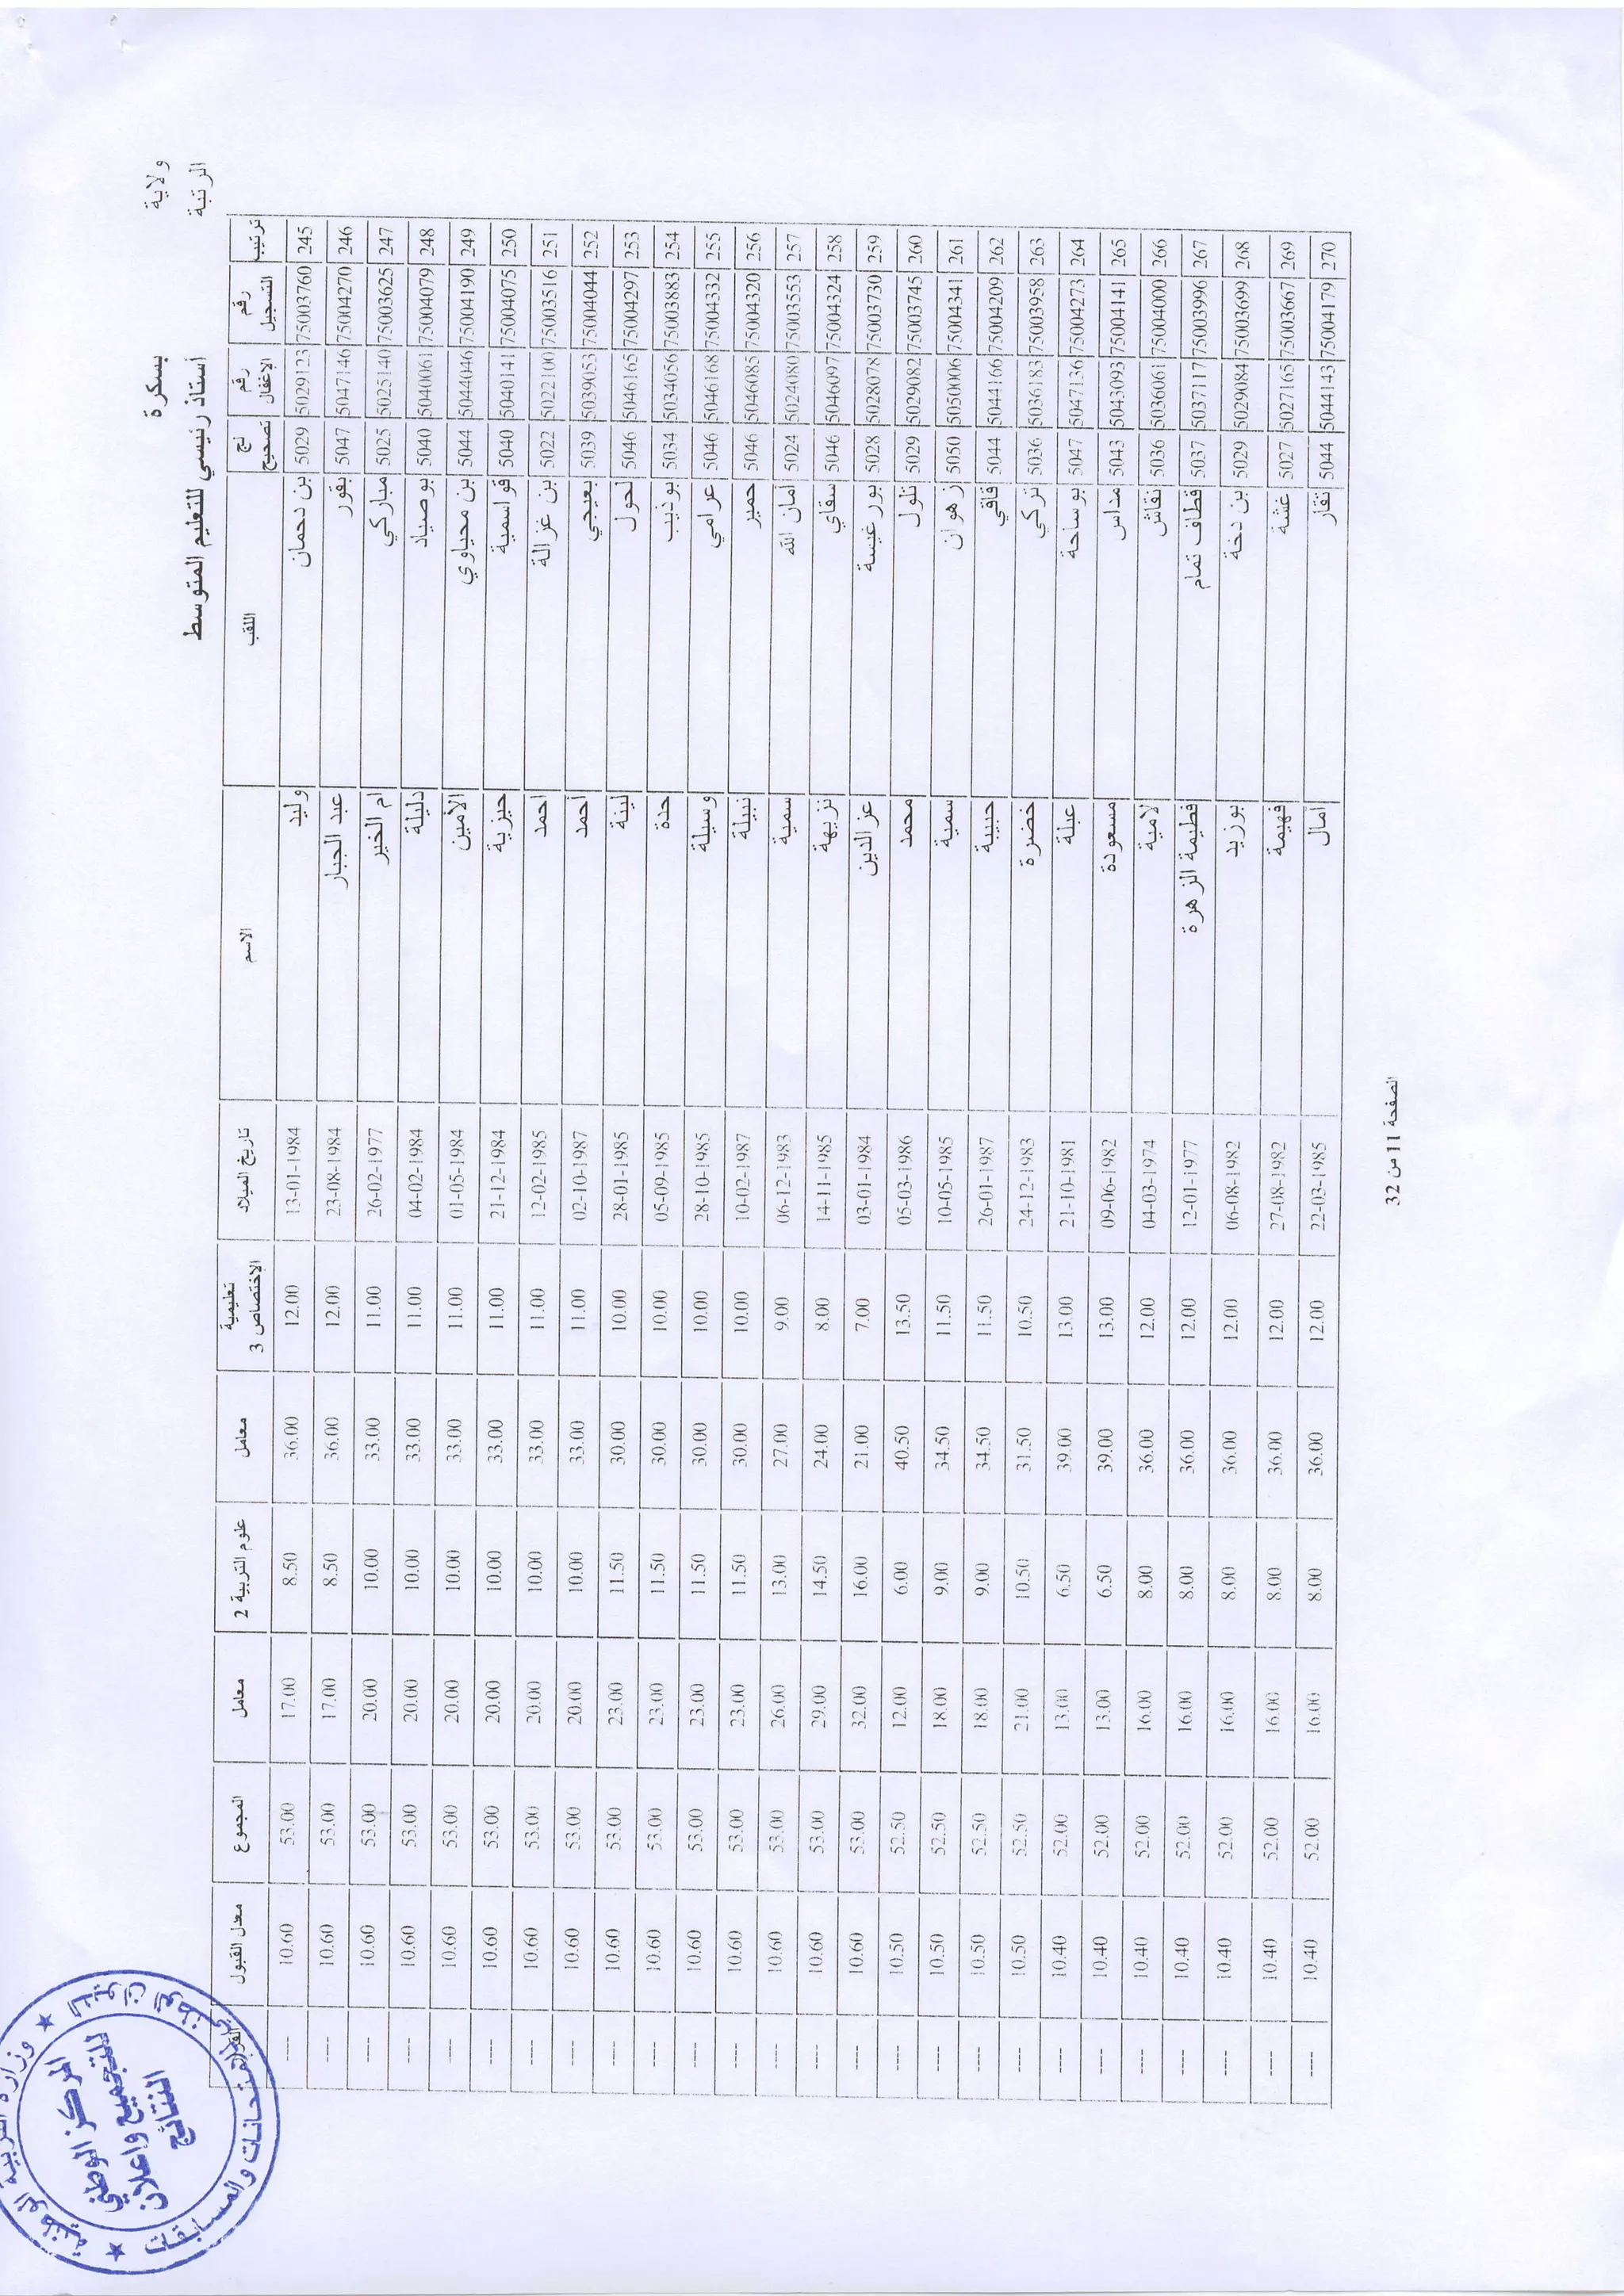 ولاية بسكرة
الرتبة أستاذ رئيسي للتعليم المتوسط
ترتيب رقم التسجيل رقم الإغفال لج تصحيح اللقب الاسم تاريخ الميلاد تعليمية الإختصاص 3 معامل علوم التربية 2 معامل المجموع معدل القبول
245 75003760 5029123 5029 بن دحمان وليد 13-01-1984 12.00 36.00 8.50 17.00 53.00 10.60 ----
246 75004270 5047146 5047 بقور عبد الجبار 23-08-1984 12.00 36.00 8.50 17.00 53.00 10.60 ----
247 75003625 5025140 5025 مباركي ام الخير 26-02-1977 11.00 33.00 10.00 20.00 53.00 10.60 ----
248 75004079 5040061 5040 بوصياد دليلة 04-02-1984 11.00 33.00 10.00 20.00 53.00 10.60 ----
249 75004190 5044046 5044 بن محياوي الأمين 01-05-1984 11.00 33.00 10.00 20.00 53.00 10.60 ----
250 75004075 5040141 5040 قواسمية حيزية 21-12-1984 11.00 33.00 10.00 20.00 53.00 10.60 ----
251 75003516 5022100 5022 بن غزالة احمد 12-02-1985 11.00 33.00 10.00 20.00 53.00 10.60 ----
252 75004044 5039053 5039 بعيجي أحمد 02-10-1987 11.00 33.00 10.00 20.00 53.00 10.60 ----
253 75004297 5046165 5046 لحول لينة 28-01-1985 10.00 30.00 11.50 23.00 53.00 10.60 ----
254 75003883 5034056 5034 بوذيب حدة 05-09-1985 10.00 30.00 11.50 23.00 53.00 10.60 ----
255 75004332 5046168 5046 عرامي وسيلة 28-10-1985 10.00 30.00 11.50 23.00 53.00 10.60 ----
256 75004320 5046085 5046 حمير نبيلة 10-02-1987 10.00 30.00 11.50 23.00 53.00 10.60 ----
257 75003553 5024080 5024 أمان الله سمية 06-12-1983 9.00 27.00 13.00 26.00 53.00 10.60 ----
258 75004324 5046097 5046 سقاي نزيهة 14-11-1985 8.00 24.00 14.50 29.00 53.00 10.60 ----
259 75003730 5028078 5028 بورغيسة عز الدين 03-01-1984 7.00 21.00 16.00 32.00 53.00 10.60 ----
260 75003745 5029082 5029 تلول محمد 05-03-1986 13.50 40.50 6.00 12.00 52.50 10.50 ----
261 75004341 5050006 5050 زهوان سمية 10-05-1985 11.50 34.50 9.00 18.00 52.50 10.50 ----
262 75004209 5044166 5044 قاقي حبيبة 26-01-1987 11.50 34.50 9.00 18.00 52.50 10.50 ----
263 75003958 5036183 5036 تركي خضرة 24-12-1983 10.50 31.50 10.50 21.00 52.50 10.50 ----
264 75004273 5047136 5047 بوساحة عبلة 21-10-1981 13.00 39.00 6.50 13.00 52.00 10.40 ----
265 75004141 5043093 5043 مداس مسعودة 09-06-1982 13.00 39.00 6.50 13.00 52.00 10.40 ----
266 75004000 5036061 5036 نقاش لامية 04-03-1974 12.00 36.00 8.00 16.00 52.00 10.40 ----
267 75003996 5037117 5037 قطاف تمام فطيمة الزهرة 12-01-1977 12.00 36.00 8.00 16.00 52.00 10.40 ----
268 75003699 5029084 5029 بن دخة بوزيد 06-08-1982 12.00 36.00 8.00 16.00 52.00 10.40 ----
269 75003667 5027165 5027 غشة فهيمة 27-08-1982 12.00 36.00 8.00 16.00 52.00 10.40 ----
270 75004179 5044143 5044 نقاز امال 22-03-1985 12.00 36.00 8.00 16.00 52.00 10.40 ----
الصفحة 11 من 32
المركز الوطني
للتجميع واعلان
النتائج